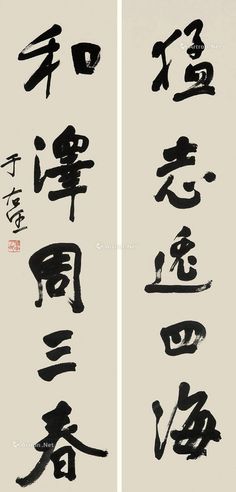 猛志逸四海
和澤周三春
于右任
Artron.Net